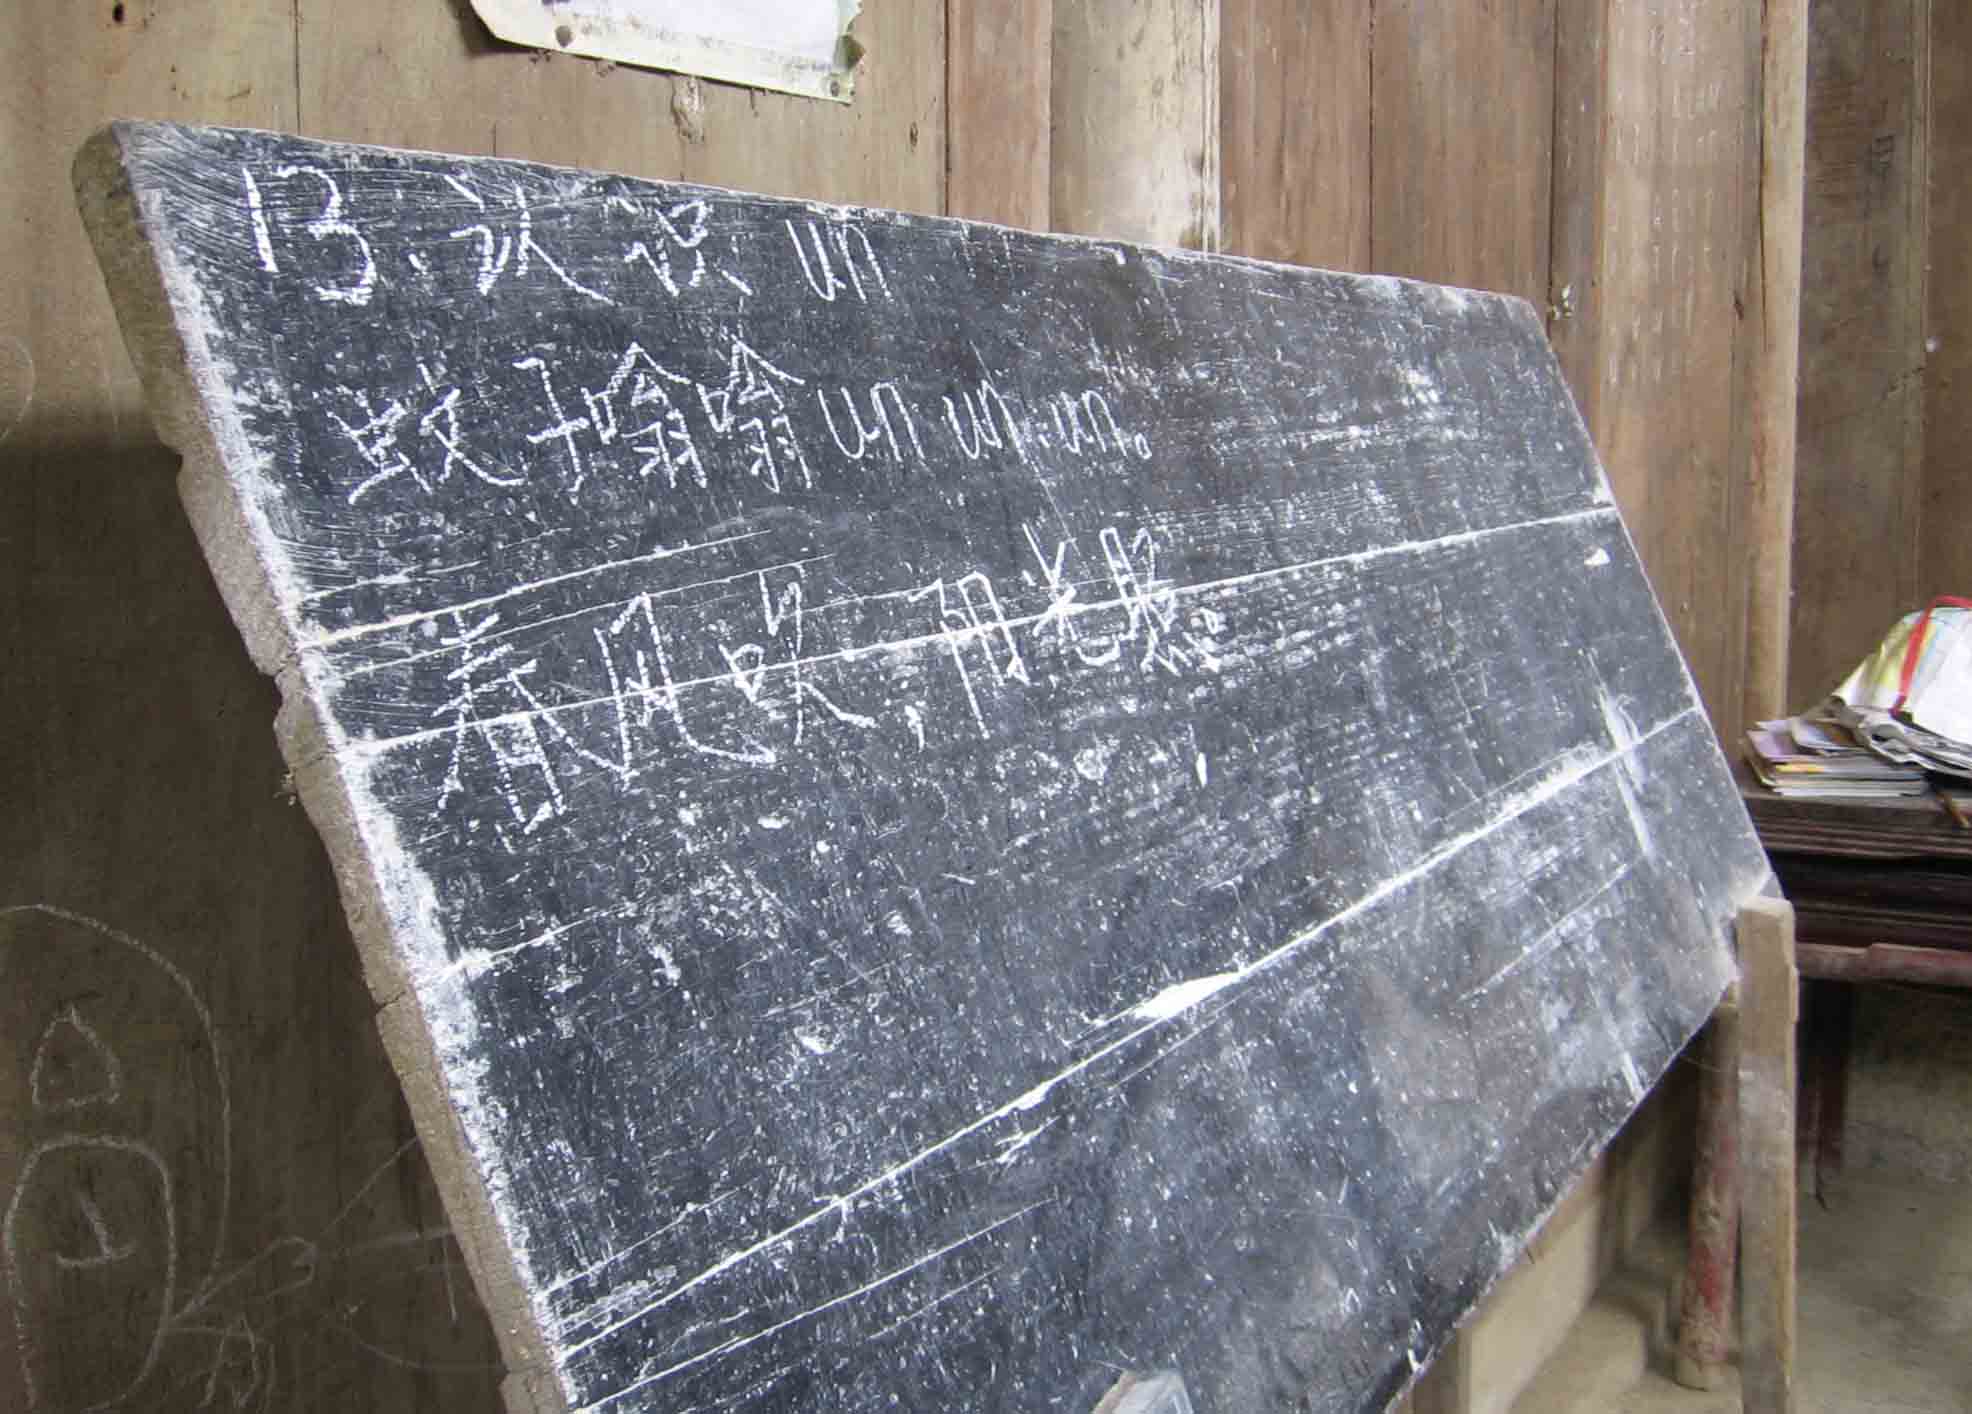 13.认识 un
蚊子嗡嗡un un un。
春风吹,阳光照。